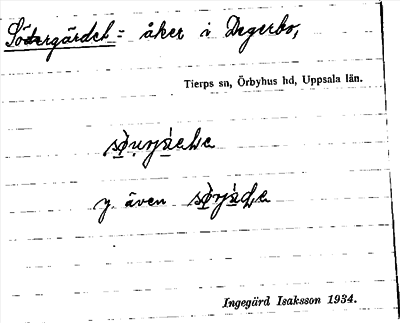 Södergärdet = åker i Degerbo,
Tierps sn, Örbyhus hd, Uppsala län.
y. även
Ingegärd Isaksson 1934.